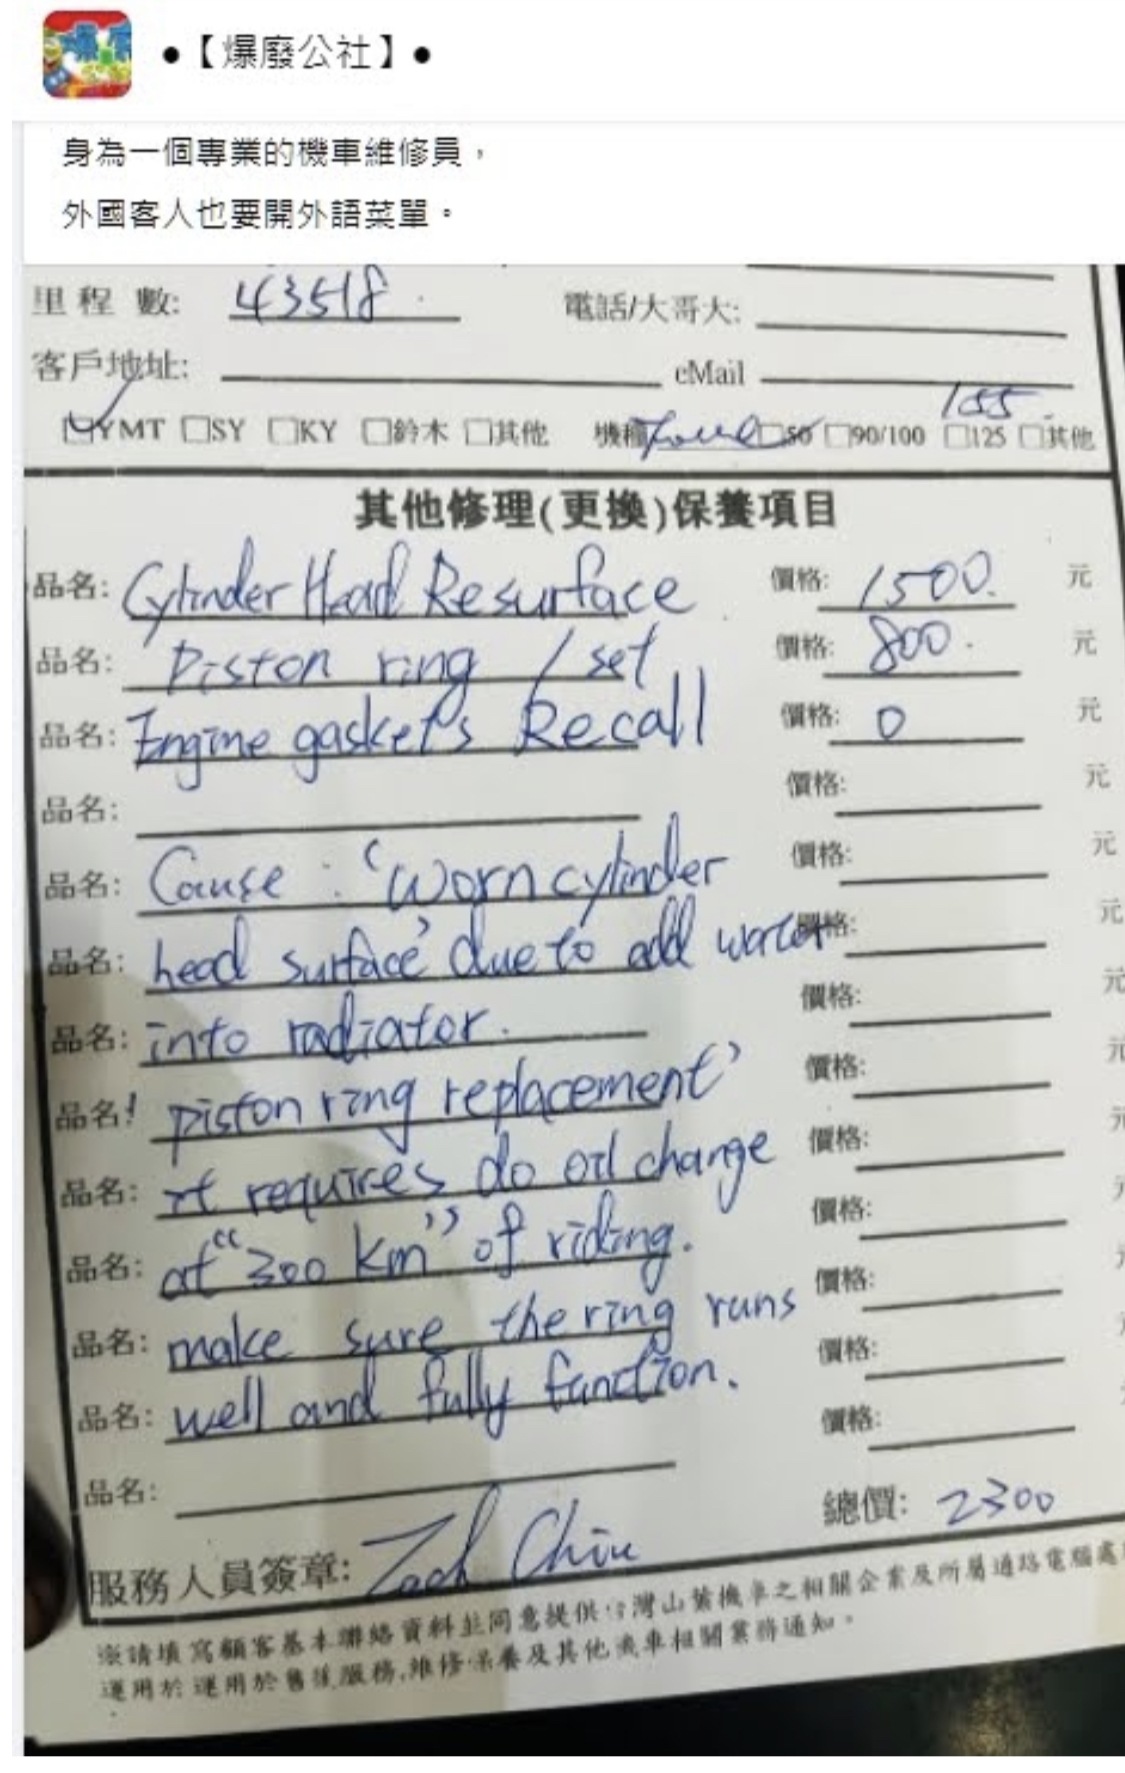 ●【爆廢公社】●
身為一個專業的機車維修員，
外國客人也要開外語菜單。
里程數: 43518. 電話/大哥大:
客戶地址: eMail
155.
☑YMT □SY □KY □鈴木 □其他 機種 □50 □90/100 □125 □其他
其他修理(更換)保養項目
品名: Cylinder Head Resurface 價格: 1500. 元
品名: Piston ring / set 價格: 800. 元
品名: Engine gaskets Recall 價格: 0 元
品名: 價格: 元
品名: Cause : 'Worn cylinder 價格: 元
品名: head surface' due to add water 價格: 元
品名: into radiator. 價格: 元
品名: 'piston ring replacement' 價格: 元
品名: it requires do oil change 價格: 元
品名: at "300 km" of riding. 價格:
品名: make sure the ring runs 價格:
品名: well and fully function. 價格:
品名: 價格:
總價: 2300
服務人員簽章: Zach Chiu
邀請填寫顧客基本聯絡資料並同意提供台灣山葉機車之相關企業及所屬通路電腦處
運用於售後服務,維修保養及其他機車相關業務通知。